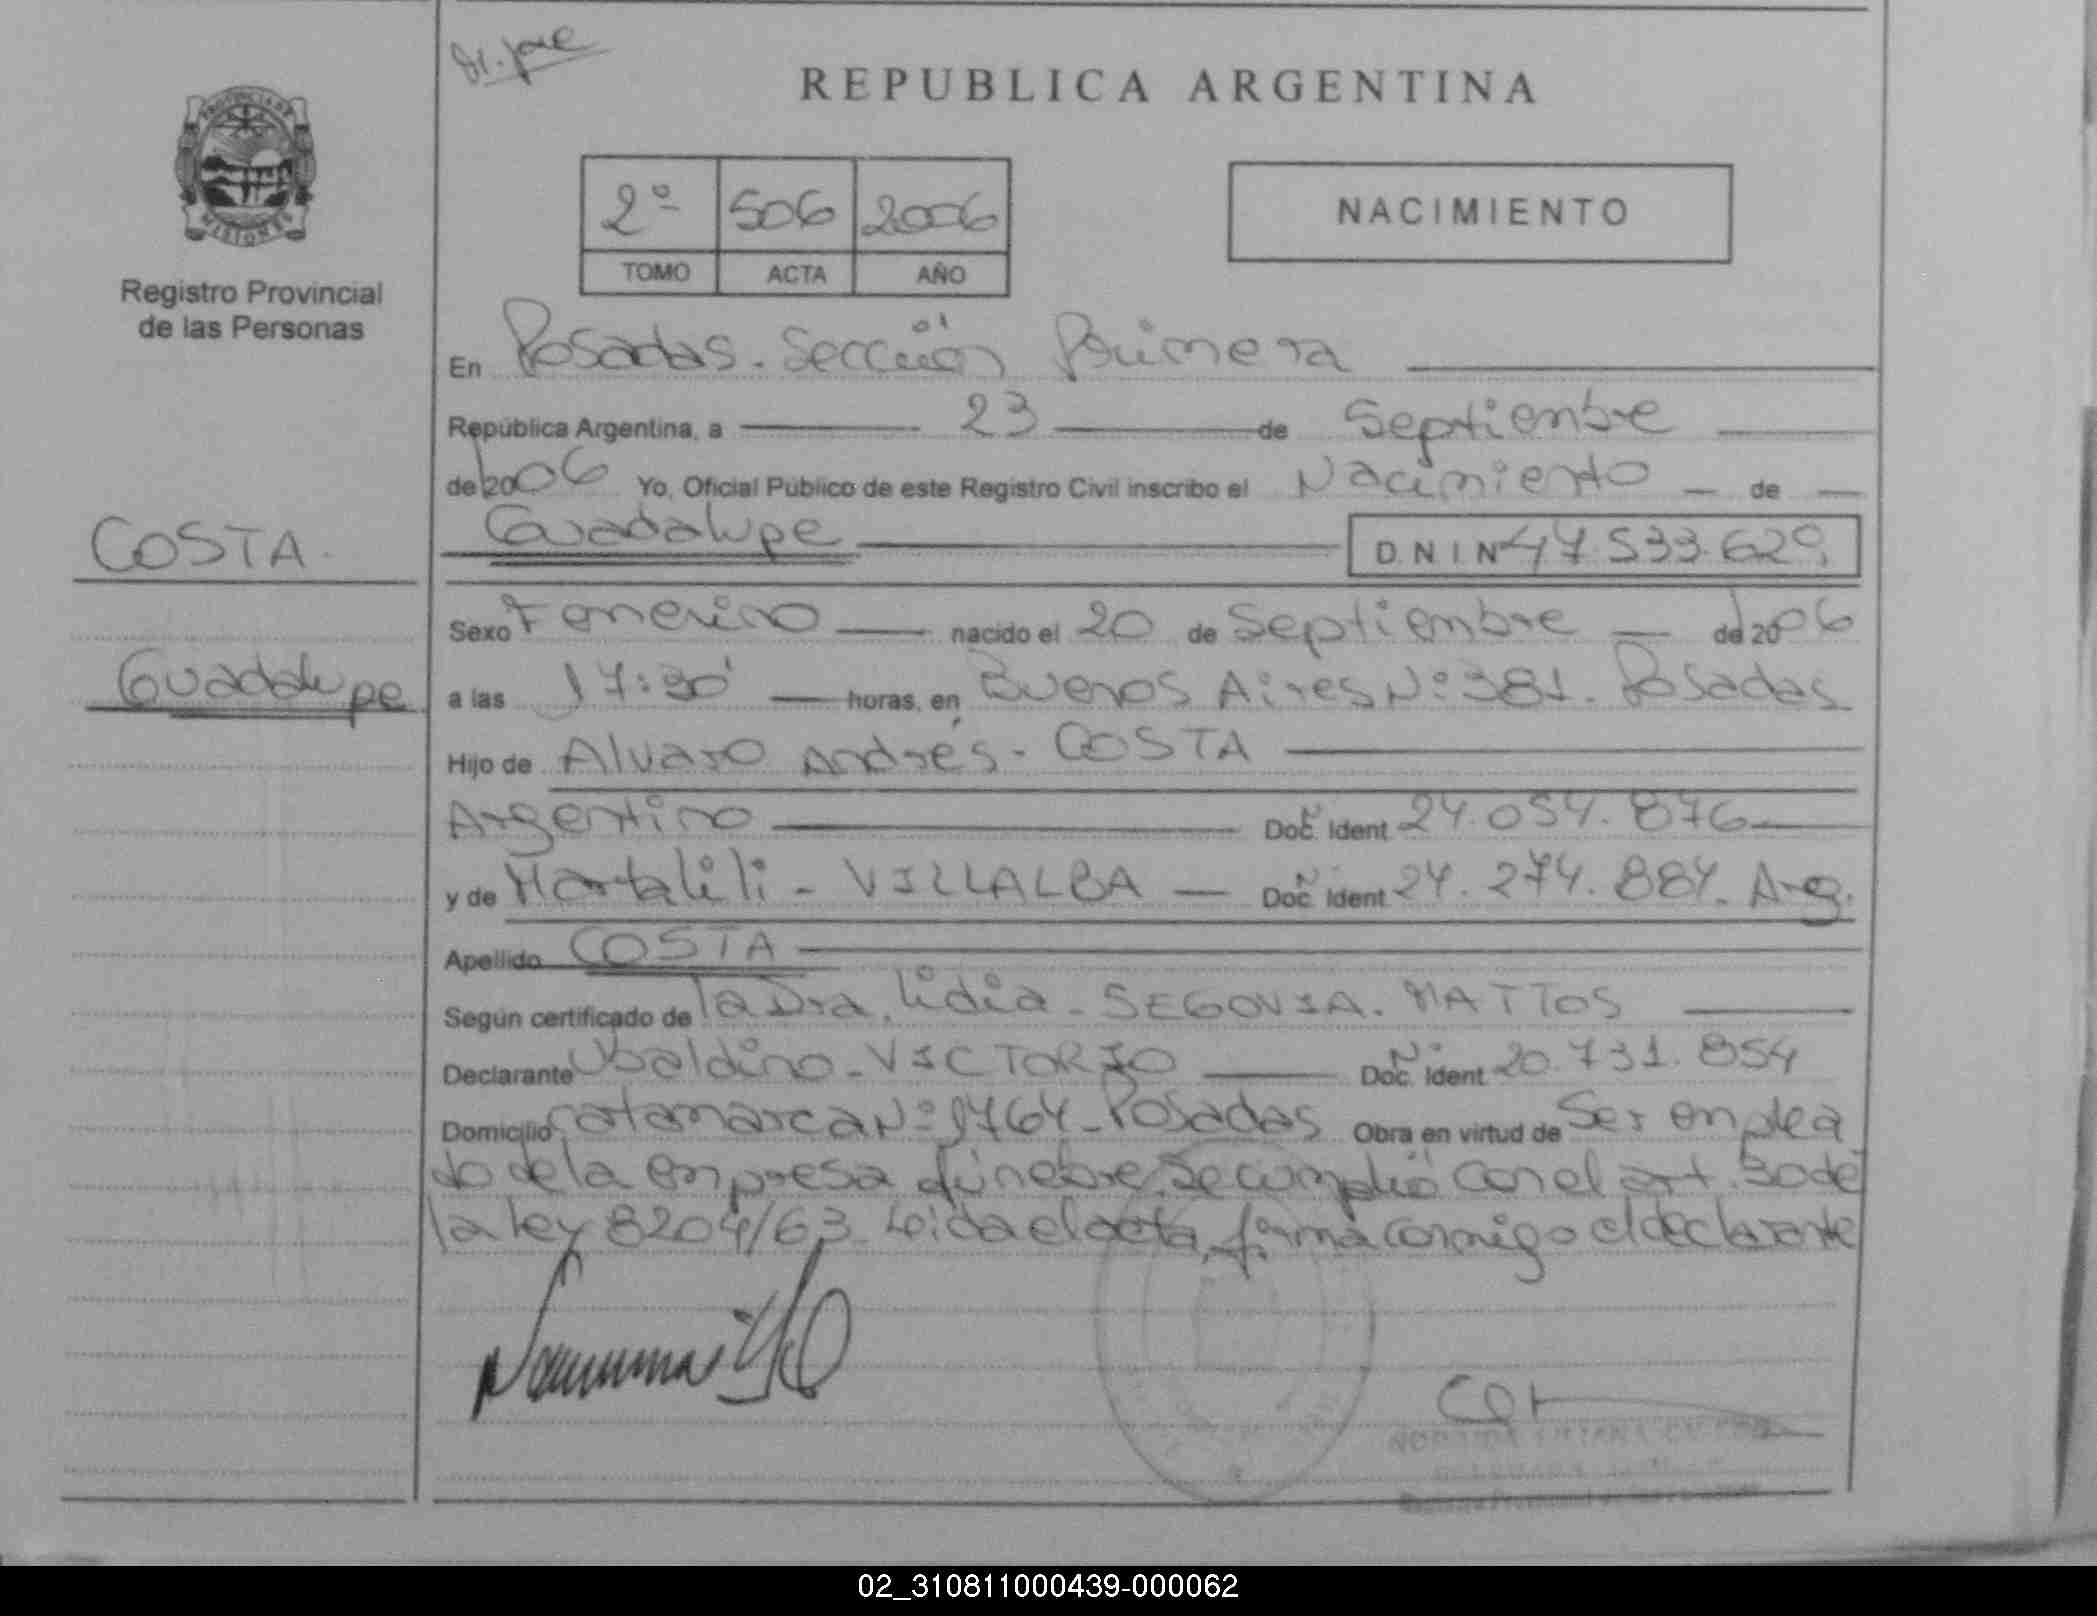 REPUBLICA ARGENTINA
PROVINCIA DE
MISIONES
Registro Provincial
de las Personas
2º 506 2006
TOMO ACTA AÑO
NACIMIENTO
En Posadas. Sección Primera
República Argentina, a 23 de Septiembre
de 2006 Yo, Oficial Público de este Registro Civil inscribo el Nacimiento de
Guadalupe D N I Nº 47.533.629
COSTA.
Guadalupe
Sexo Femenino nacido el 20 de Septiembre de 2006
a las 17:30' horas, en Buenos Aires Nº 381. Posadas
Hijo de Alvaro Andrés - COSTA
Argentino Doc. Ident 24.054.876
y de Marta Lili - VILLALBA Doc. Ident 24.274.884. Arg.
Apellido COSTA
Según certificado de la Dra. Lidia - SEGOVIA. MATTOS
Declarante Ubaldino - VICTORIO Doc. Ident 20.731.854
Domicilio Catamarca Nº 1764 - Posadas Obra en virtud de Ser emplea
do de la empresa fúnebre. Se cumplió con el art. 30 de
la ley 8204/63. Leida el acta, firma conmigo el declarante
02_310811000439-000062